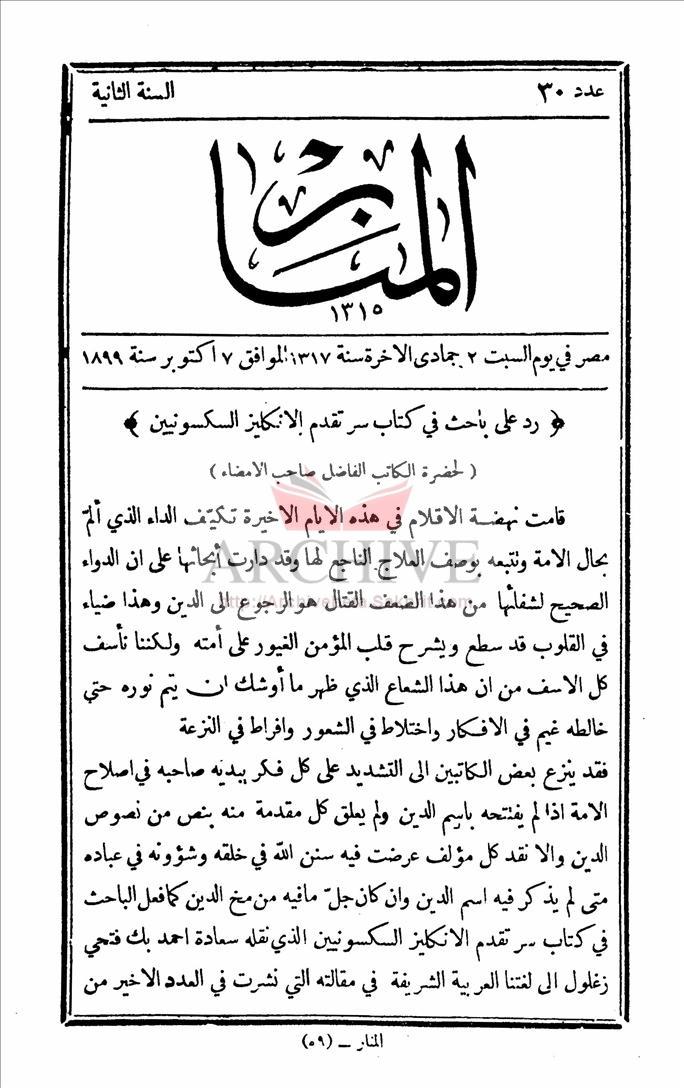 عدد ٣٠
السنة الثانية
المنار
١٣١٥
مصر في يوم السبت ٢ جمادى الآخرة سنة ١٣١٧ الموافق ٧ اكتوبر سنة ١٨٩٩
﴿ رد على باحث في كتاب سر تقدم الانكليز السكسونيين ﴾
( لحضرة الكاتب الفاضل صاحب الامضاء )
قامت نهضة الاقلام في هذه الايام الاخيرة تكيّف الداء الذي ألمّ
بحال الامة ونتبعه بوصف العلاج الناجع لها وقد دارت أبحاثها على ان الدواء
الصحيح لشفائها من هذا الضعف القتال هو الرجوع الى الدين وهذا ضياء
في القلوب قد سطع ويشرح قلب المؤمن الغيور على أمته ولكننا نأسف
كل الاسف من ان هذا الشعاع الذي ظهر ما أوشك ان يتم نوره حتي
خالطه غيم في الافكار واختلاط في الشعور وافراط في النزعة
فقد ينزع بعض الكاتبين الى التشديد على كل فكر يبديه صاحبه في اصلاح
الامة اذا لم يفتتحه باسم الدين ولم يعلق كل مقدمة منه بنص من نصوص
الدين والا نقد كل مؤلف عرضت فيه سنن الله في خلقه وشؤونه في عباده
متى لم يذكر فيه اسم الدين وان كان جلّ مافيه من مخ الدين كما فعل الباحث
في كتاب سر تقدم الانكليز السكسونيين الذي نقله سعادة احمد بك فتحي
زغلول الى لغتنا العربية الشريفة في مقالته التي نشرت في العدد الاخير من
المنار ــ (٥٩)
ARCHIVE